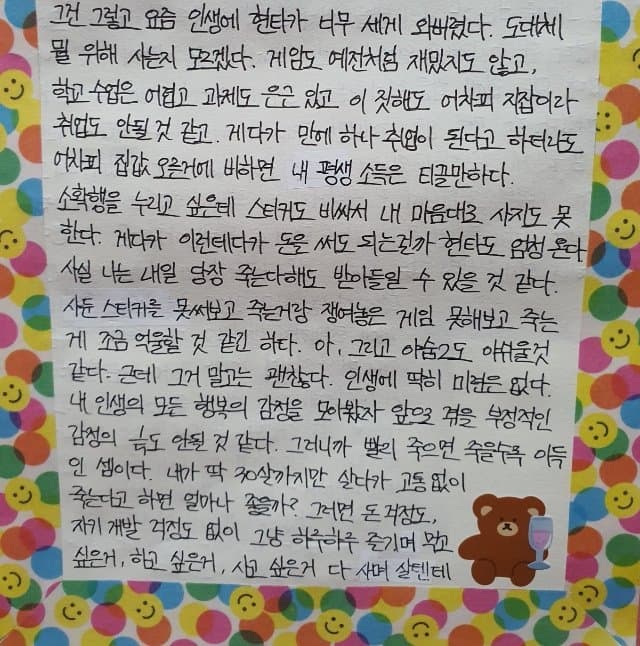 그건 그렇고 요즘 인생에 현타가 너무 세게 와버렸다. 도대체
뭘 위해 사는지 모르겠다. 게임도 예전처럼 재밌지도 않고,
학교 수업은 어렵고 과제도 은근 있고 이 짓해도 어차피 지잡이라
취업도 안될 것 같고. 게다가 만에 하나 취업이 된다고 하더라도
어차피 집값 오른거에 비하면 내 평생 소득은 티끌만하다.
소확행을 누리고 싶은데 스티커도 비싸서 내 마음대로 사지도 못
한다. 게다가 이런데다가 돈을 써도 되는건가 현타도 엄청 온다
사실 나는 내일 당장 죽는다해도 받아들일 수 있을 것 같다.
사둔 스티커를 못써보고 죽는거랑 쟁여놓은 게임 못해보고 죽는
게 조금 억울할 것 같긴 하다. 아, 그리고 야숨2도 아쉬울것
같다. 근데 그거 말고는 괜찮다. 인생에 딱히 미련은 없다.
내 인생의 모든 행복의 감정을 모아봤자 앞으로 겪을 부정적인
감정의 ½도 안될 것 같다. 그러니까 빨리 죽으면 죽을수록 이득
인 셈이다. 내가 딱 30살까지만 살다가 고통 없이
죽는다고 하면 얼마나 좋을까? 그러면 돈 걱정도,
자기 개발 걱정도 없이 그냥 하루하루 즐기며 먹고
싶은거, 하고 싶은거, 사고 싶은거 다 사며 살텐데